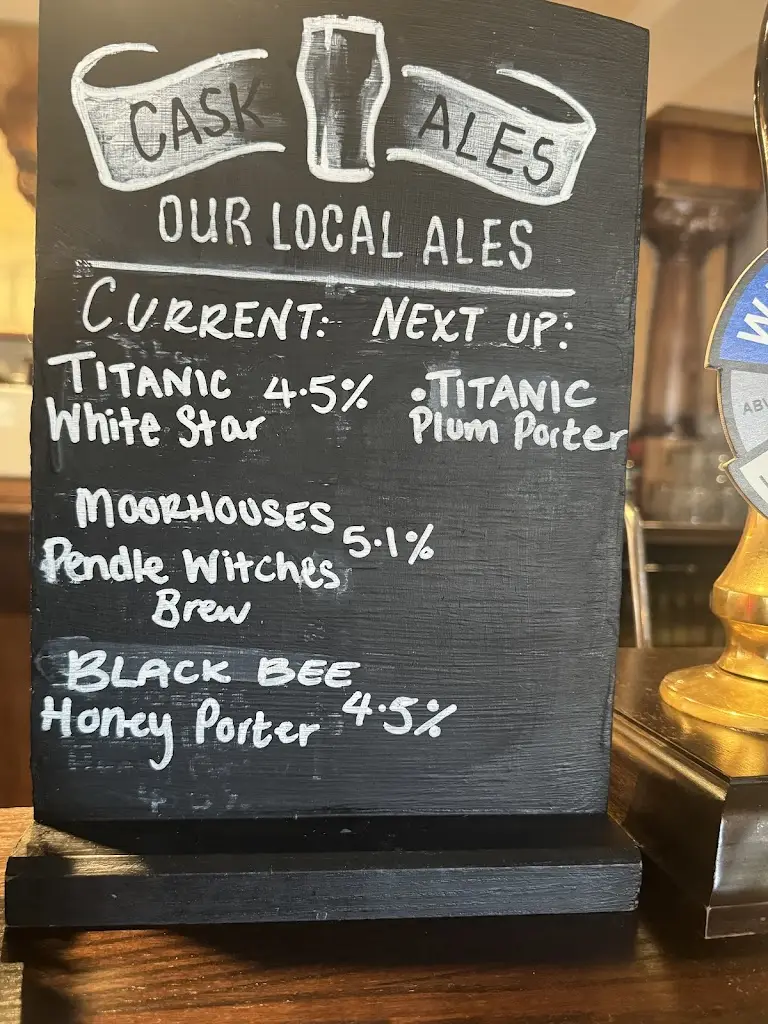 CASK ALES
OUR LOCAL ALES
CURRENT: NEXT UP:
TITANIC 4.5% •TITANIC
White Star Plum Porter
MOORHOUSES
5.1%
Pendle Witches
Brew
BLACK BEE
Honey Porter 4.5%
W
ABV